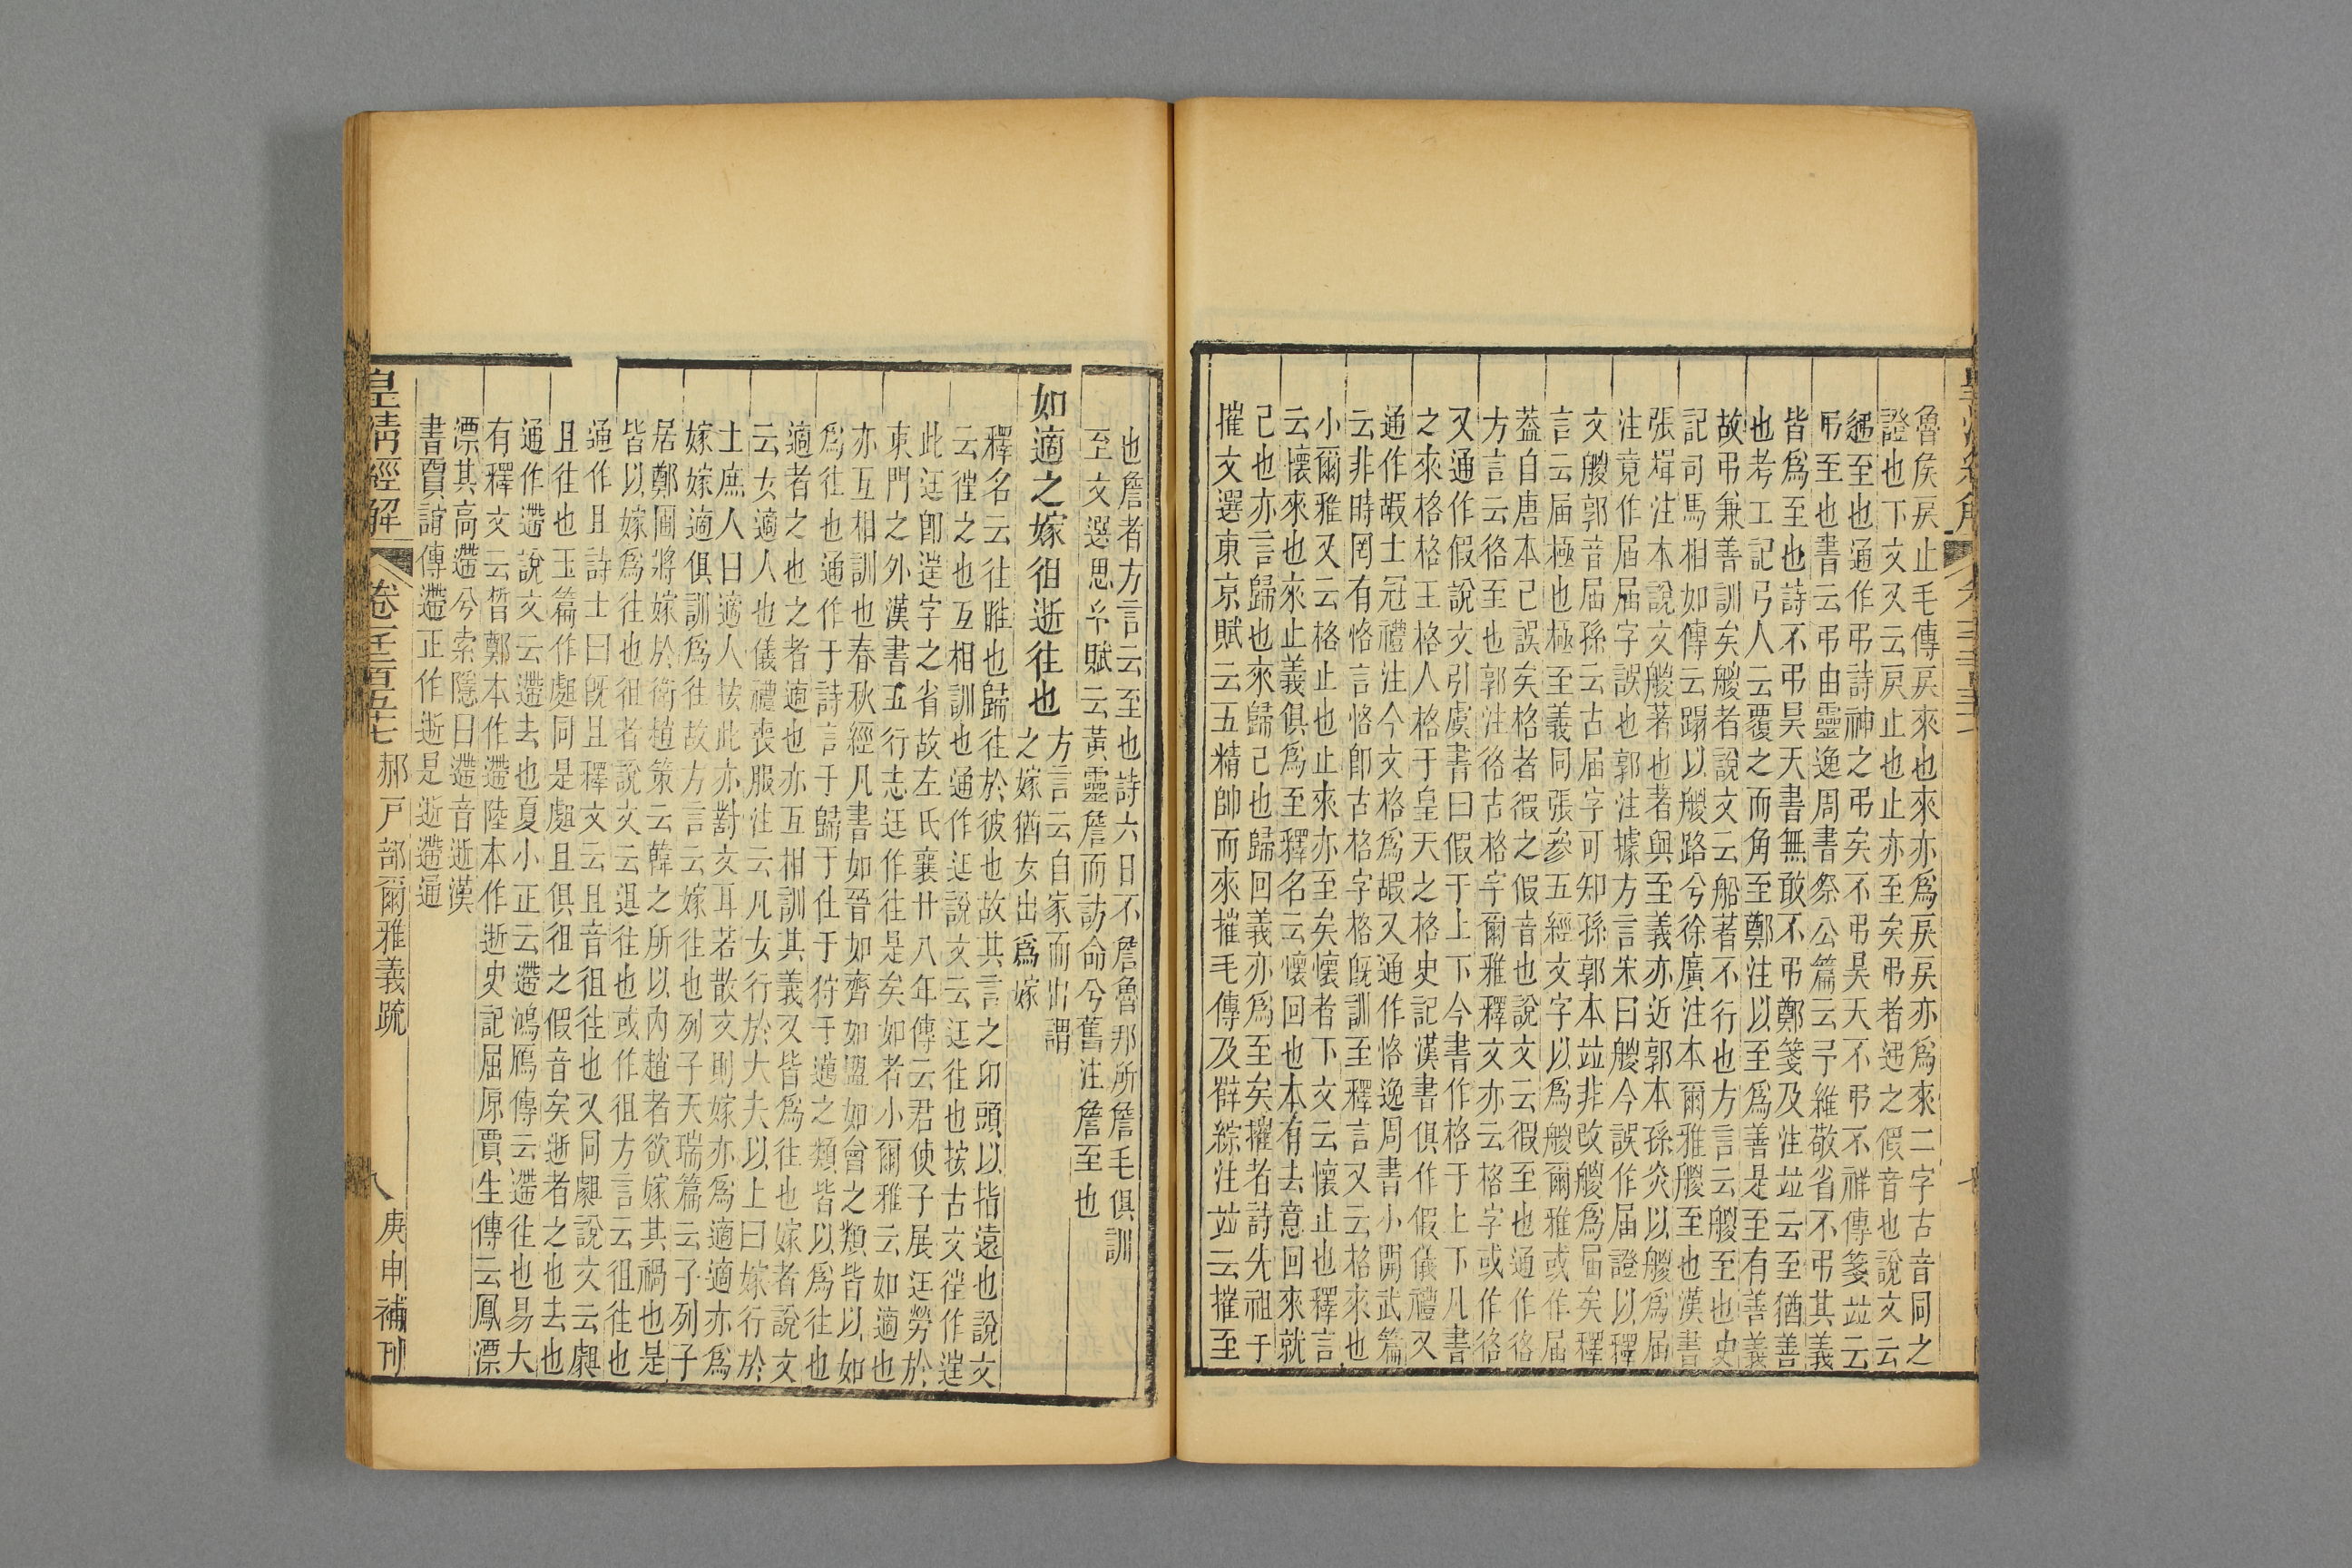 魯矦戾止毛傳戾來也來亦爲戾戾亦爲來二字古音同之
證也下文又云戾止也止亦至矣弔者䢒之假音也說文云
䢒至也通作弔詩神之弔矣不弔昊天不弔不祥傳箋竝云
弔至也書云弔由靈逸周書祭公篇云予維敬省不弔其義
皆爲至也詩不弔昊天書無敢不弔鄭箋及注竝云至猶善
也考工記弓人云覆之而角至鄭注以至爲善是至有善義
故弔兼善訓矣艐者說文云船著不行也方言云艐至也史
記司馬相如傳云蹋以艐路兮徐廣注本爾雅艐至也漢書
張揖注本說文艐著也著與至義亦近郭本孫炎以艐爲屆
注竟作屆屆字誤也郭注據方言宋曰艐今誤作屆證以釋
文艐郭音屆孫云古屆字可知孫郭本竝非改艐爲屆矣釋
言云屆極也極至義同張參五經文字以爲艐爾雅或作屆
葢自唐本己誤矣格者徦之假音也說文云徦至也通作佫
方言云佫至也郭注佫古格字爾雅釋文亦云格字或作佫
又通作假說文引虞書曰假于上下今書作格于上下凡書
之來格格王格人格于皇天之格史記漢書俱作假儀禮又
通作嘏士冠禮注今文格爲嘏又通作恪逸周書小開武篇
云非時罔有恪言恪卽古格字格旣訓至釋言又云格來也
小爾雅又云格止也止來亦至矣懷者下文云懷止也釋言
云懷來也來止義俱爲至釋名云懷回也本有去意回來就
己也亦言歸也來歸己也歸回義亦爲至矣摧者詩先祖于
摧文選東京賦云五精帥而來摧毛傳及薛綜注竝云摧至
也詹者方言云至也詩六日不詹魯邦所詹毛俱訓
至文選思予賦云黃靈詹而訪命兮舊注詹至也
如適之嫁徂逝往也
方言云自家而出謂
之嫁猶女出爲嫁
釋名云往暀也歸往於彼也故其言之卬頭以指遠也說文
云徃之也互相訓也通作迋說文云迋往也按古文徃作𨓹
此迋卽𨓹字之省故左氏襄廿八年傳云君使子展迋勞於
東門之外漢書五行志迋作往是矣如者小爾雅云如適也
亦互相訓也春秋經凡書如晉如齊如盟如會之類皆以如
爲往也通作于詩言于歸于仕于狩于邁之類皆以爲往也
適者之也之者適也亦互相訓其義又皆爲往也嫁者說文
云女適人也儀禮喪服注云凡女行於大夫以上曰嫁行於
士庶人曰適人按此亦對文耳若散文則嫁亦爲適適亦爲
嫁嫁適俱訓爲往故方言云嫁往也列子天瑞篇云子列子
居鄭圃將嫁於衛趙策云韓之所以內趙者欲嫁其禍也是
皆以嫁爲往也徂者說文云䢐往也或作徂方言云徂往也
通作且詩士曰旣且釋文云且音徂往也又同𧇑說文云𧇑
且往也玉篇作𧇑同是𧇑且俱徂之假音矣逝者之也去也
通作遰說文云遰去也夏小正云遰鴻鴈傳云遰往也易大
有釋文云晢鄭本作遰陸本作逝史記屈原賈生傳云鳳漂
漂其高遰兮索隱曰遰音逝漢
書賈誼傳遰正作逝是逝遰通
皇淸經解
卷一千二百五十七
郝戶部爾雅義疏
八
庚申補刊